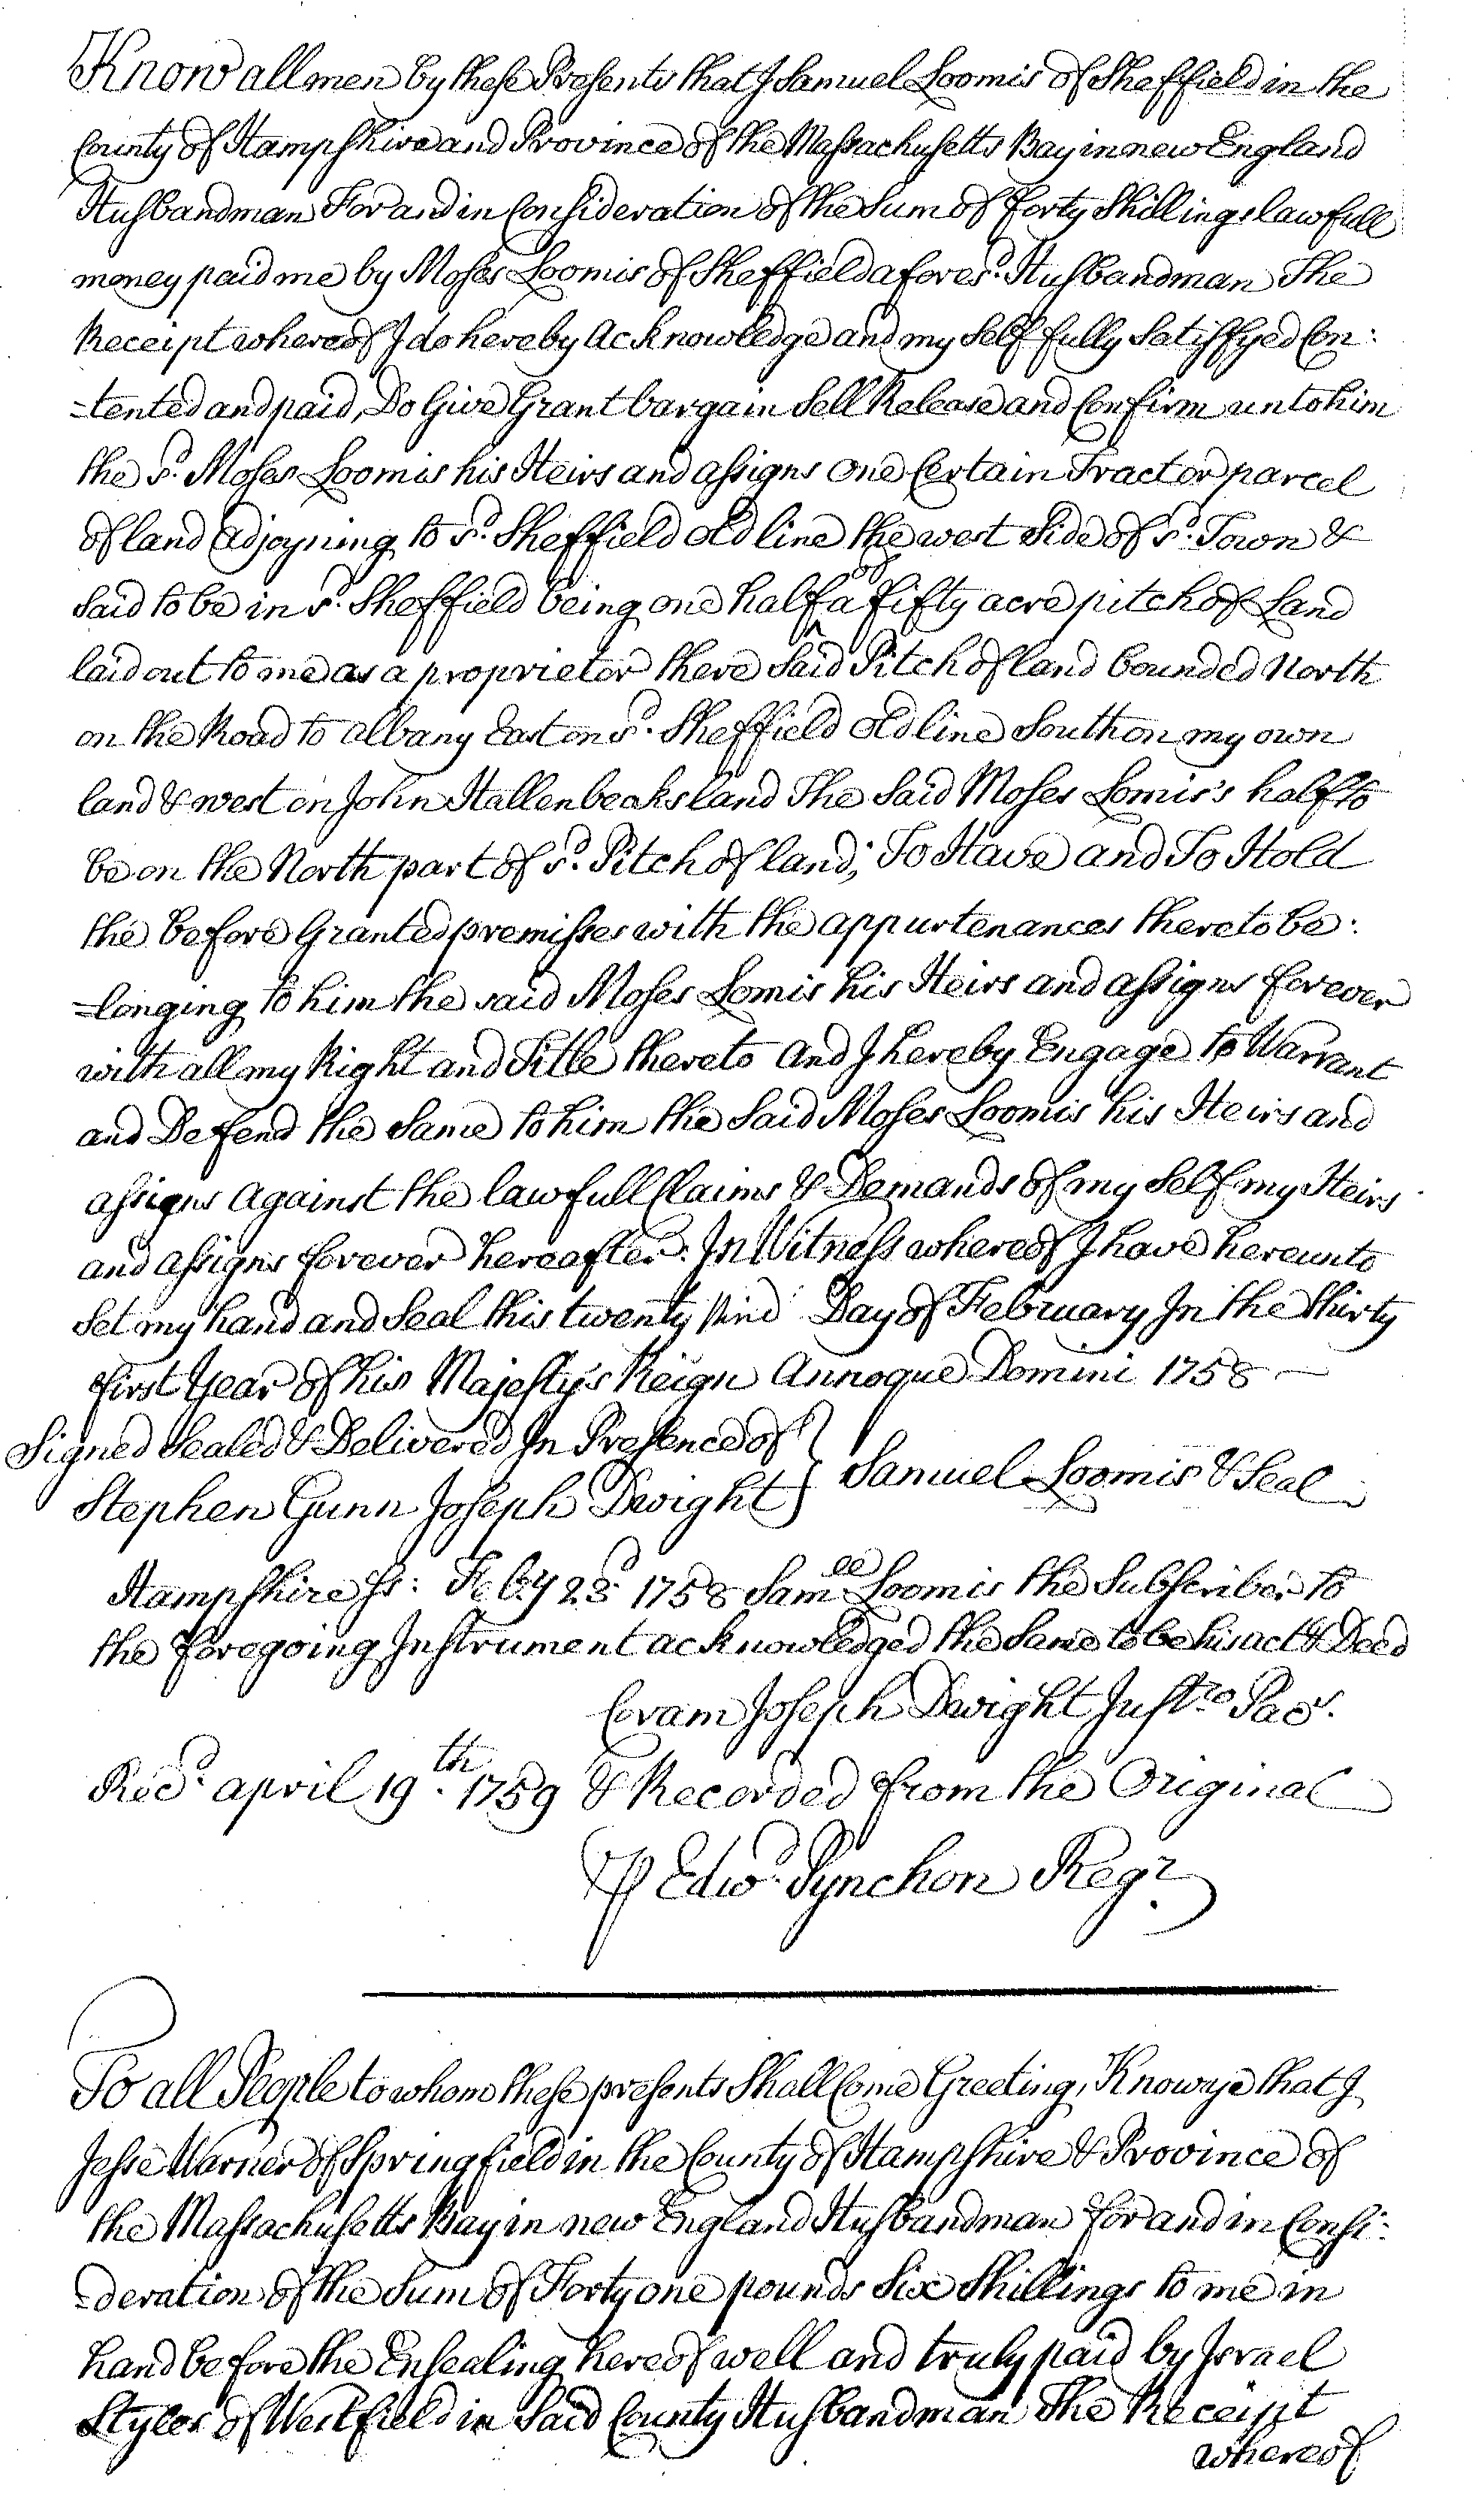 Know all men by these Presents that I Samuel Loomis of Sheffield in the
County of Hampshire and Province of the Massachusetts Bay in new England
Husbandman For and in Consideration of the Sum of Forty Shillings lawfull
money paid me by Moses Loomis of Sheffield afores.d Husbandman The
Receipt whereof I do hereby acknowledge and my Self fully Satisfyed Con:
-tented and paid, Do Give Grant bargain Sell Release and Confirm unto him
the s.d Moses Loomis his Heirs and assigns one Certain Tract or parcel
of land adjoyning to s.d Sheffield old line the west Side of s.d Town &
Said to be in s.d Sheffield being one half of a fifty acre pitch of Land
laid out to me as a proprietor there Said Pitch of land bounded North
on the Road to albany East on s.d Sheffield old line South on my own
land & west on John Hallenbeaks land The Said Moses Lomis's half to
be on the North part of s.d Pitch of land; To Have and To Hold
the before Granted premisses with the appurtenances thereto be:
-longing to him the said Moses Lomis his Heirs and assigns forever
with all my Right and Title thereto And I hereby Engage to Warrant
and Defend the Same to him the Said Moses Loomis his Heirs and
assigns against the lawfull Claims & Demands of my Self my Heirs
and assigns forever hereafter. In Witness whereof I have hereunto
Set my hand and Seal this twenty Day of February In the thirty
first Year of his Majesty's Reign Annoque Domini 1758
Signed Sealed & Delivered In Presence of
Stephen Gunn Joseph Dwight } Samuel Loomis & Seal
Hampshire ss: Feb.y 23.d 1758 Sam.ll Loomis the Subscriber to
the foregoing Instrument acknowledged the Same to be his act & Deed
Coram Joseph Dwight Just.ce Pac.s
Rec.d april 19.th 1759 & Recorded from the Original
P Edw.d Pynchon Reg.r
To all People to whom these presents Shall Come Greeting, Know ye that I
Jesse Warner of Springfield in the County of Hampshire & Province of
the Massachusetts Bay in new England Husbandman for and in Consi:
-deration of the Sum of Forty one pounds Six Shillings to me in
hand before the Ensealing hereof well and truly paid by Israel
Styles of Westfield in Said County Husbandman The Receipt
whereof